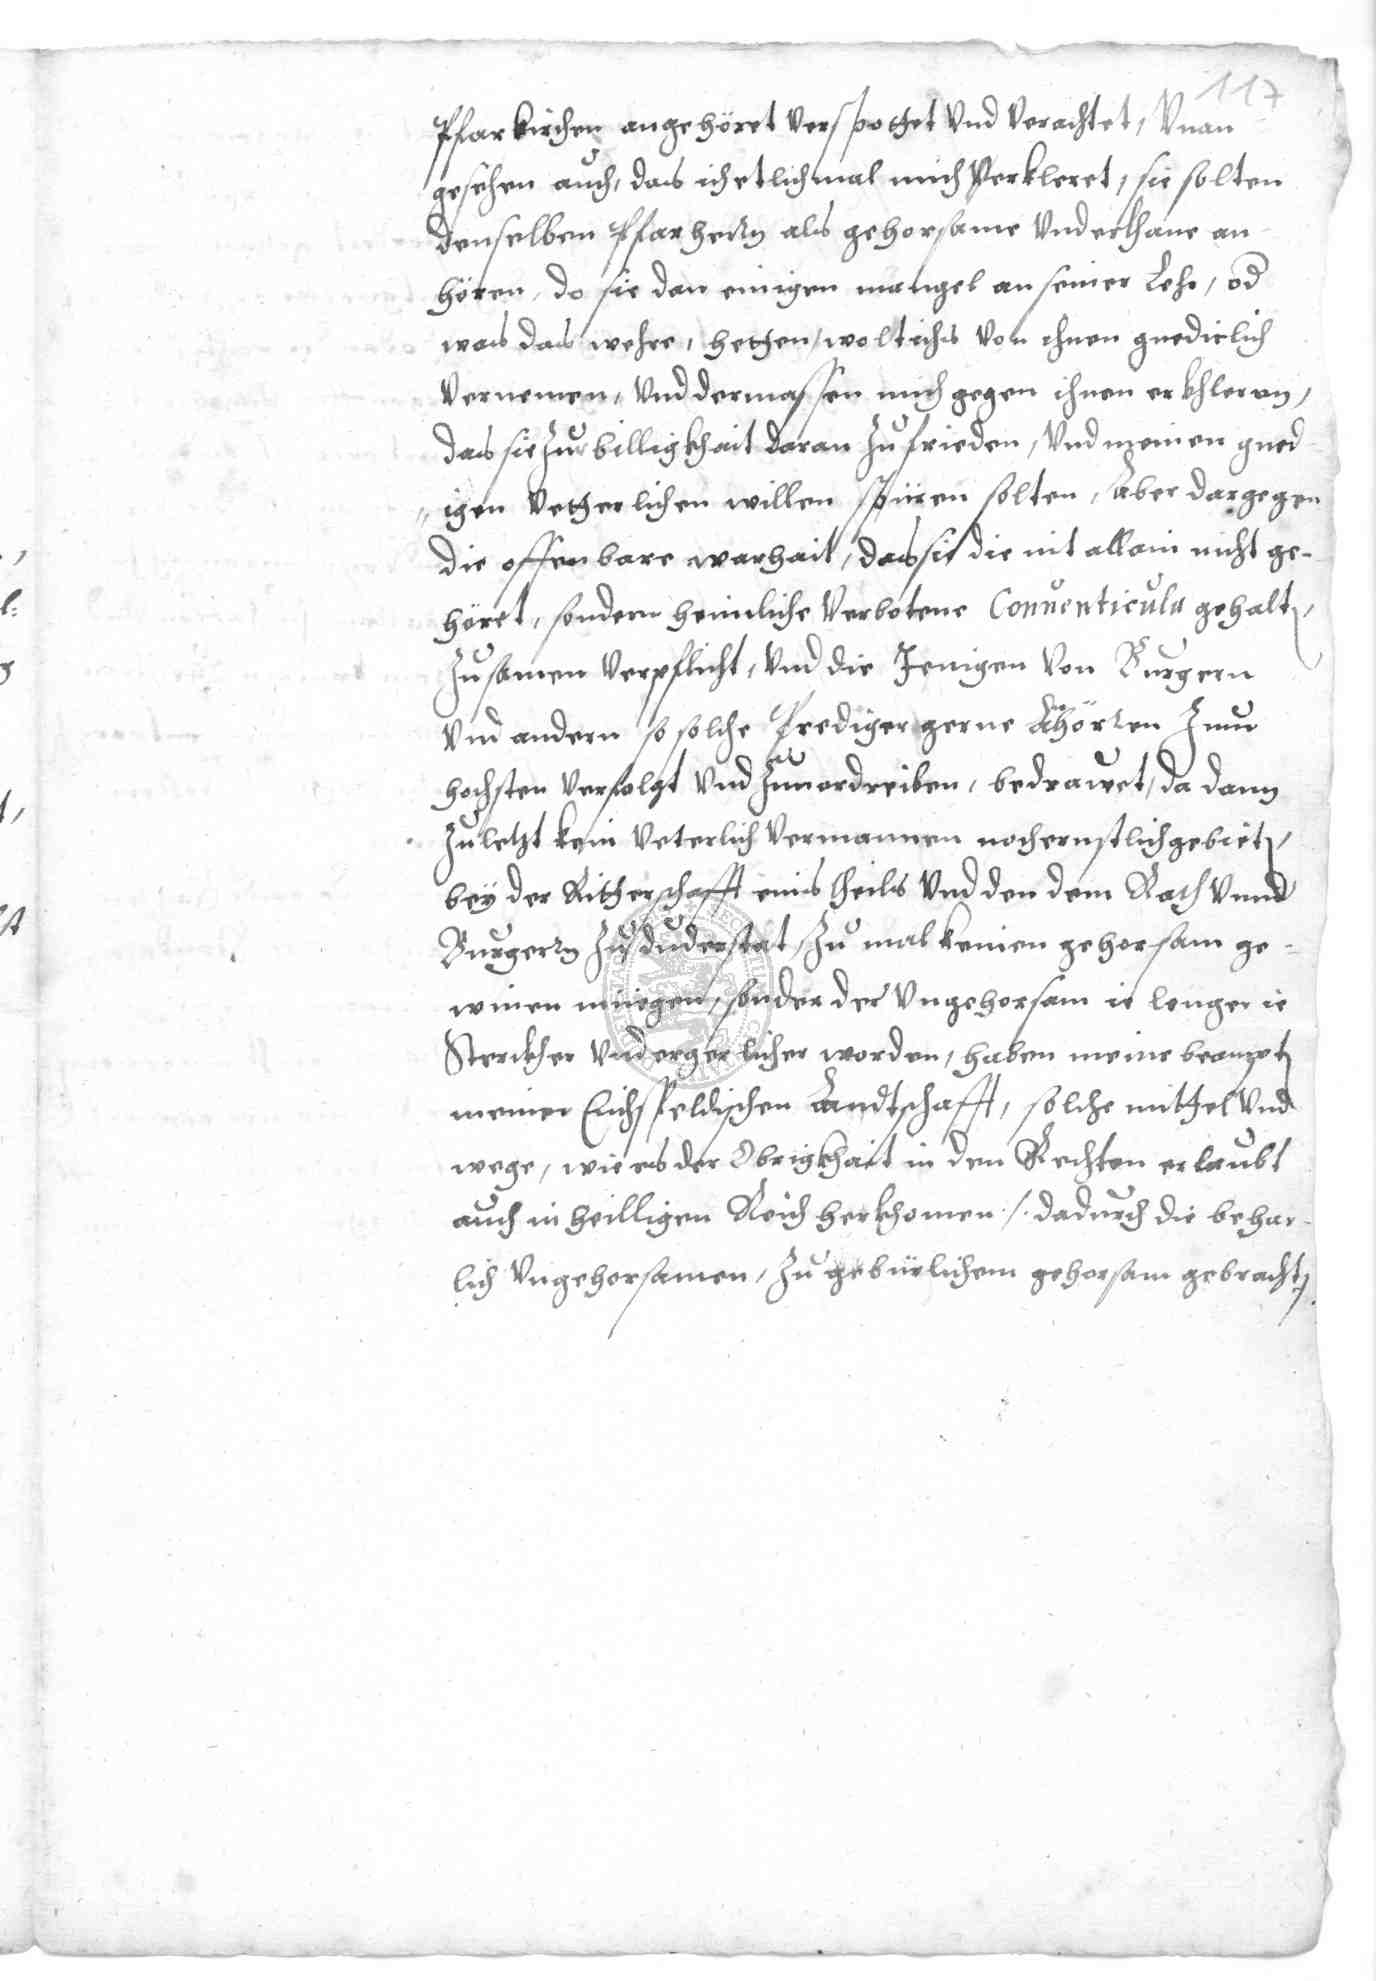 117
Pfarkirchen angehöret verspottet Vnd verachtet, Vnan
gesehen auch, das ich etlichmal mich Verkleret, sie solten
denselben Pfarherrn als gehorsame Vnderthane an
hören, do sie dan einigen mangel an seiner Lehr, od
was das wehre, hetten, wolt ichs von ihnen gnedielich
Vernemen, Vnd dermassen mich gegen ihnen erkhleren,
das sie Zur billigkhait daran Zufrieden, Vnd meinen gned
„igen Vetterlichen willen spüren solten, Aber dargegen
die offenbare warhait, das sie die nit allain nicht ge-
höret, sondern heimliche Verbotene Conuenticula gehaltn,
Zusamen Verpflicht, Vnd die Jenigen Von Burgern
Vnd andern so solche Prediger gerne hörten Zum
hochsten Verfolgt Vnd Zuuordreiben, bedrawet, da dann
Zuletzt kein Veterlich Vermannen noch ernstlich gebietn,
bey der Ritterschafft eins theils Vnd den dem Rath Vnnd
Burgern Zu duderstat, Zu mal keinen gehorsam ge-
winen muegen, sonder der Vngehorsam ie lenger ie
Sterckher Vnd ergerlicher worden, haben meine beamptn
meiner Eichsfeldischen Landtschafft, solche mittel Vnd
wege, wie es der Obrigkhait in den Rechten erlaubt
auch in heilligen Reich herkhomen /. dadurch die behar-
lich Vngehorsamen, Zu gebürlichem gehorsam gebrachtn